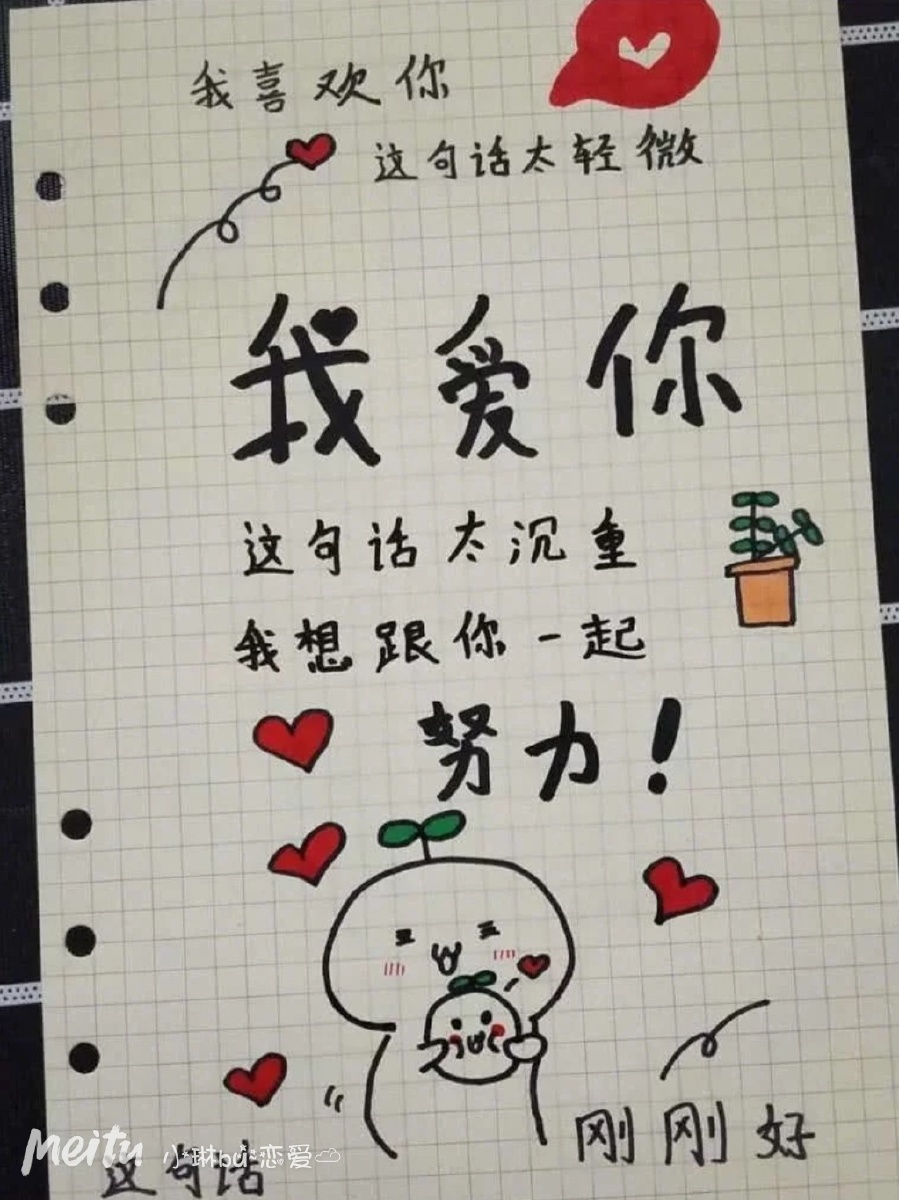 我喜欢你
这句话太轻微
我爱你
这句话太沉重
我想跟你一起
努力！
刚刚好
这句话
Meitu
小琳bu恋爱